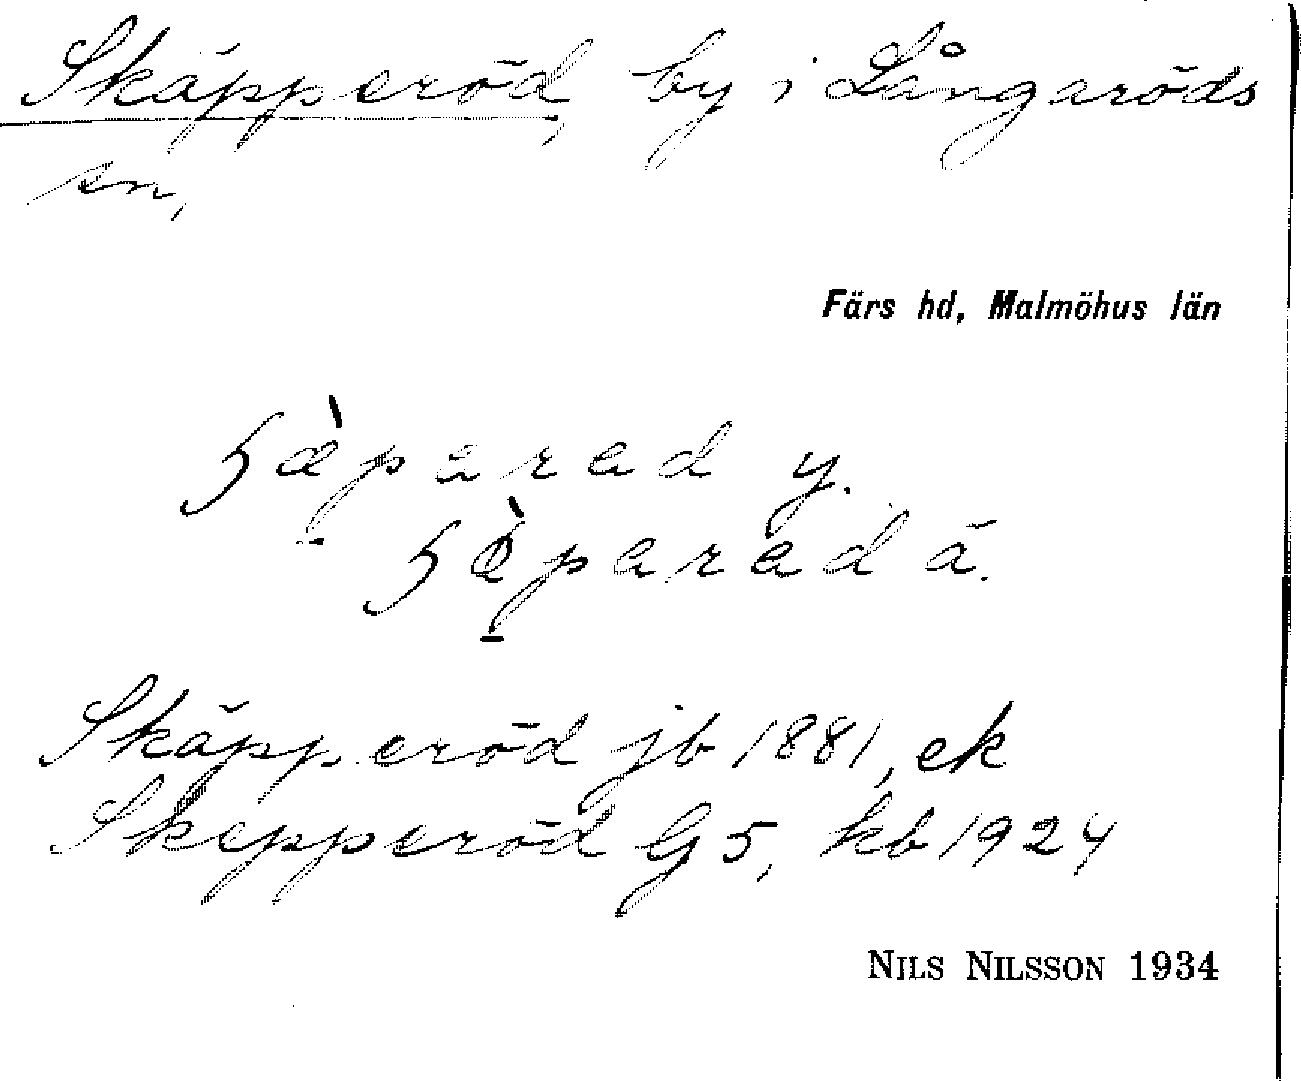 Skäpperöd, by i Långaröds
sn,
Färs hd, Malmöhus län
y.
ä.
Skäpperöd jb 1881, ek
Skepperöd G5, kb 1924
NILS NILSSON 1934